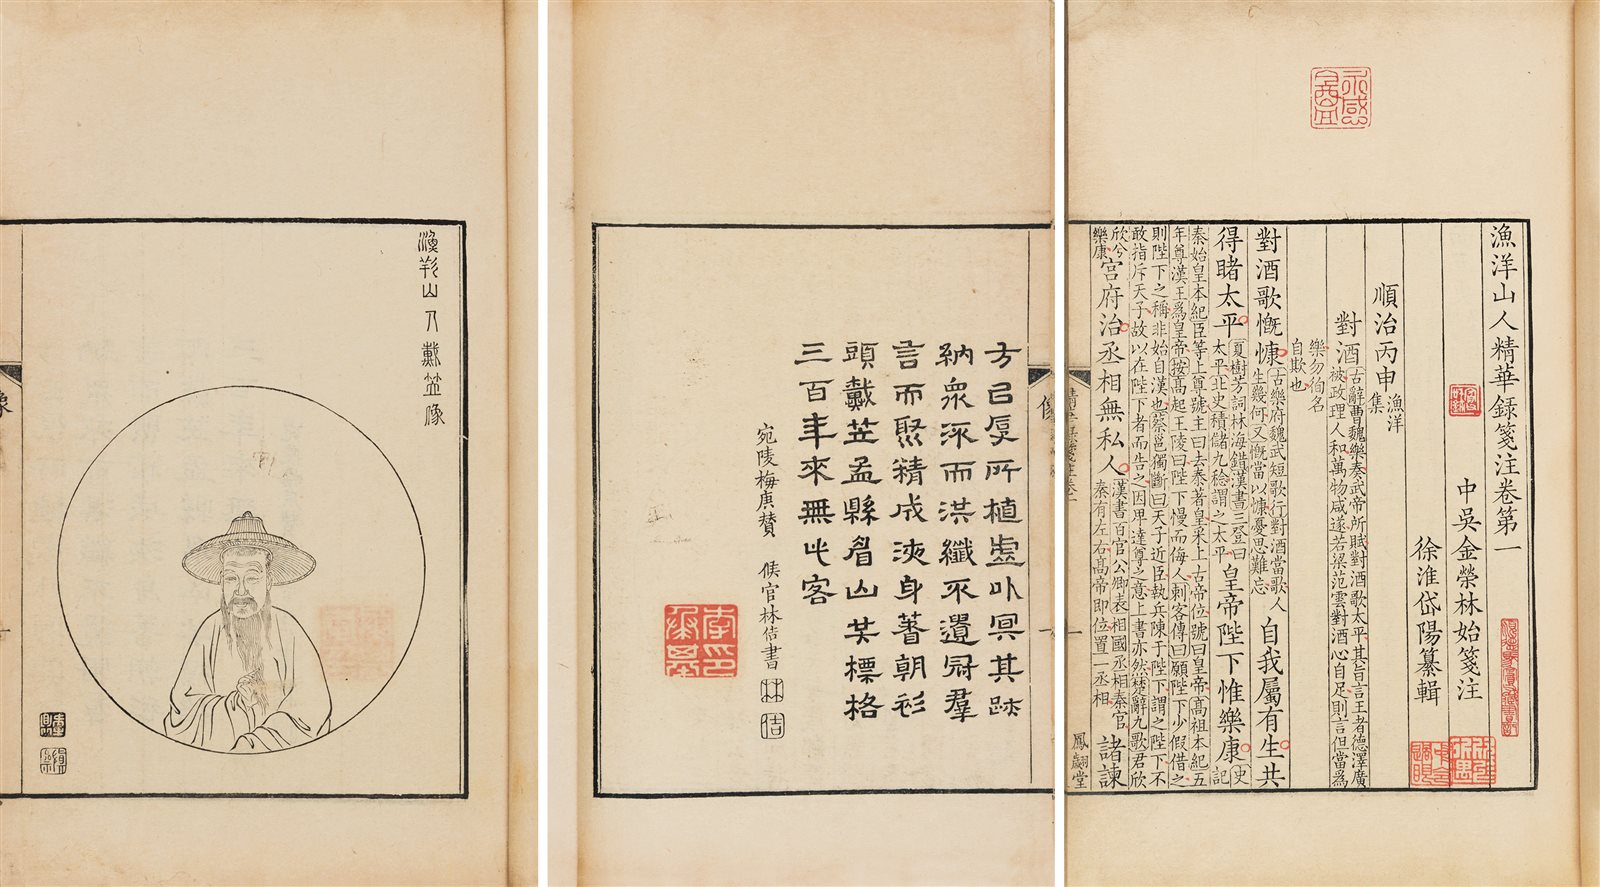 漁洋山人戴笠像
方㠯厚所植虛以冥其跡
納眾流而洪纖不遺冠羣
言而聚精成液身著朝衫
頭戴笠孟縣眉山共標格
三百年來無此客
宛陵梅庚贊 侯官林佶書
林佶
漁洋山人精華録箋注卷第一
中吳金榮林始箋注
徐淮岱陽纂輯
順治丙申 漁洋集
對酒 古辭曹魏樂奏武帝所賦對酒歌太平其旨言王者德澤廣
被政理人和萬物咸遂若梁范雲對酒心自足則言但當為
樂勿徇名
自欺也
對酒歌慨慷 古樂府魏武短歌行對酒當歌人生幾何又慨當以慷憂思難忘 自我屬有生共
得睹太平 夏樹芳詞林海錯漢書三登曰太平北史積儲九稔謂之太平 皇帝陛下惟樂康 史記
秦始皇本紀臣等上尊號王曰去泰著皇采上古帝位號曰皇帝高祖本紀五
年尊漢王爲皇帝按高起王陵曰陛下慢而侮人刺客傳曰願陛下少假借之
則陛下之稱非始自漢也蔡邕獨斷曰天子近臣執兵陳于陛下謂之陛下不
敢指斥天子故以在陛下者而告之因卑達尊之意上書亦然楚辭九歌君欣
欣兮樂康 宮府治丞相無私人 漢書百官公卿表相國丞相秦官秦有左右高帝即位置一丞相 諸諫
鳳翽堂